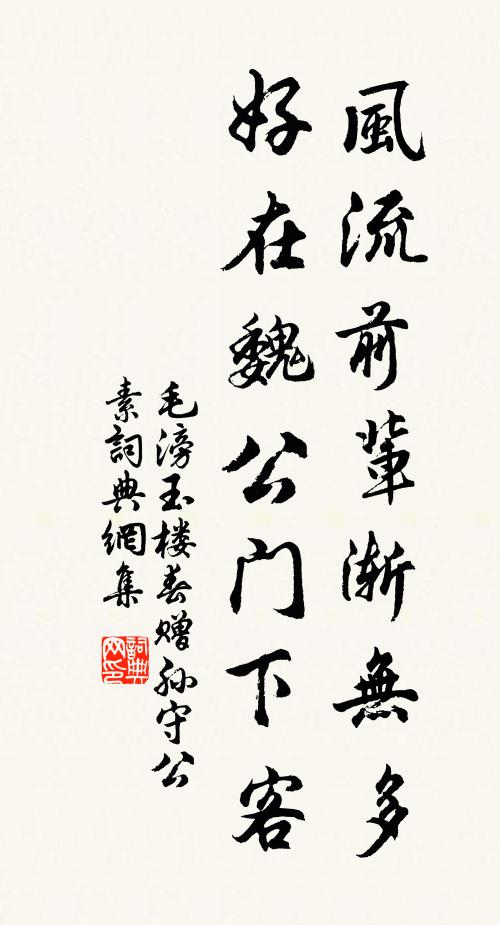 風流前輩漸無多
好在魏公门下客
毛滂玉楼春赠孙守公
素詞典網集
詞典网印